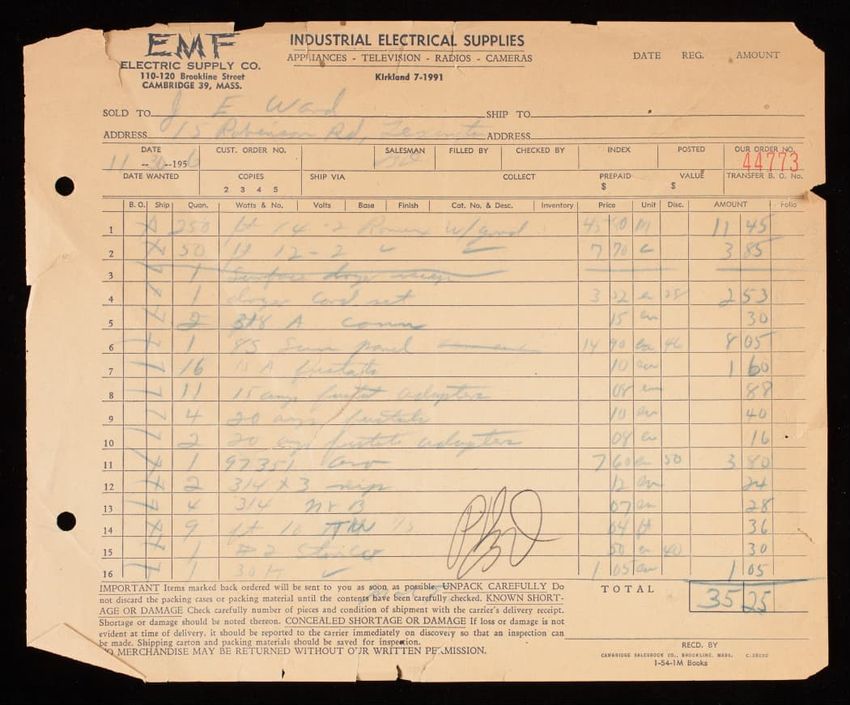 EMF
ELECTRIC SUPPLY CO.
110-120 Brookline Street
CAMBRIDGE 39, MASS.
INDUSTRIAL ELECTRICAL SUPPLIES
APPLIANCES - TELEVISION - RADIOS - CAMERAS
Kirkland 7-1991
DATE REG. AMOUNT
SOLD TO J E Ward SHIP TO
ADDRESS 15 Robinson Rd, ADDRESS
DATE CUST. ORDER NO. SALESMAN FILLED BY CHECKED BY INDEX POSTED OUR ORDER NO.
11 195 6 44773
DATE WANTED COPIES SHIP VIA COLLECT PREPAID VALUE TRANSFER B. O. No.
2 3 4 5 $ $
B. O. Ship Quan. Watts & No. Volts Base Finish Cat. No. & Desc. Inventory Price Unit Disc. AMOUNT Folio
1 250 ft 14-2 Romex w/ground M 11 45
2 50 12-2 7 70 c 3 85
3 1 Surface dryer recep
4 1 dryer cord set 3 2 53
5 2 3/8 A conn 15 30
6 1 panel 14 90 8 05
7 16 15 A fustats 10 1 60
8 11 15 amp fustat adapters 08 88
9 4 20 amp fustats 10 40
10 2 20 amp fustats adapters 08 16
11 1 97351 7 60 50 3 80
12 2 3/4 x 3 nip 12 24
13 4 3/4 07 28
14 9 ft 10 04 ft 36
15 1 #2 50 40 30
16 1 30 1 05 1 05
IMPORTANT Items marked back ordered will be sent to you as soon as possible. UNPACK CAREFULLY Do
not discard the packing cases or packing material until the contents have been carefully checked. KNOWN SHORT-
AGE OR DAMAGE Check carefully number of pieces and condition of shipment with the carrier's delivery receipt.
Shortage or damage should be noted thereon. CONCEALED SHORTAGE OR DAMAGE If loss or damage is not
evident at time of delivery, it should be reported to the carrier immediately on discovery so that an inspection can
be made. Shipping carton and packing materials should be saved for inspection.
NO MERCHANDISE MAY BE RETURNED WITHOUT OUR WRITTEN PERMISSION.
TOTAL 35 25
RECD. BY
CAMBRIDGE SALESBOOK CO., BROOKLINE, MASS.
1-54-1M Books